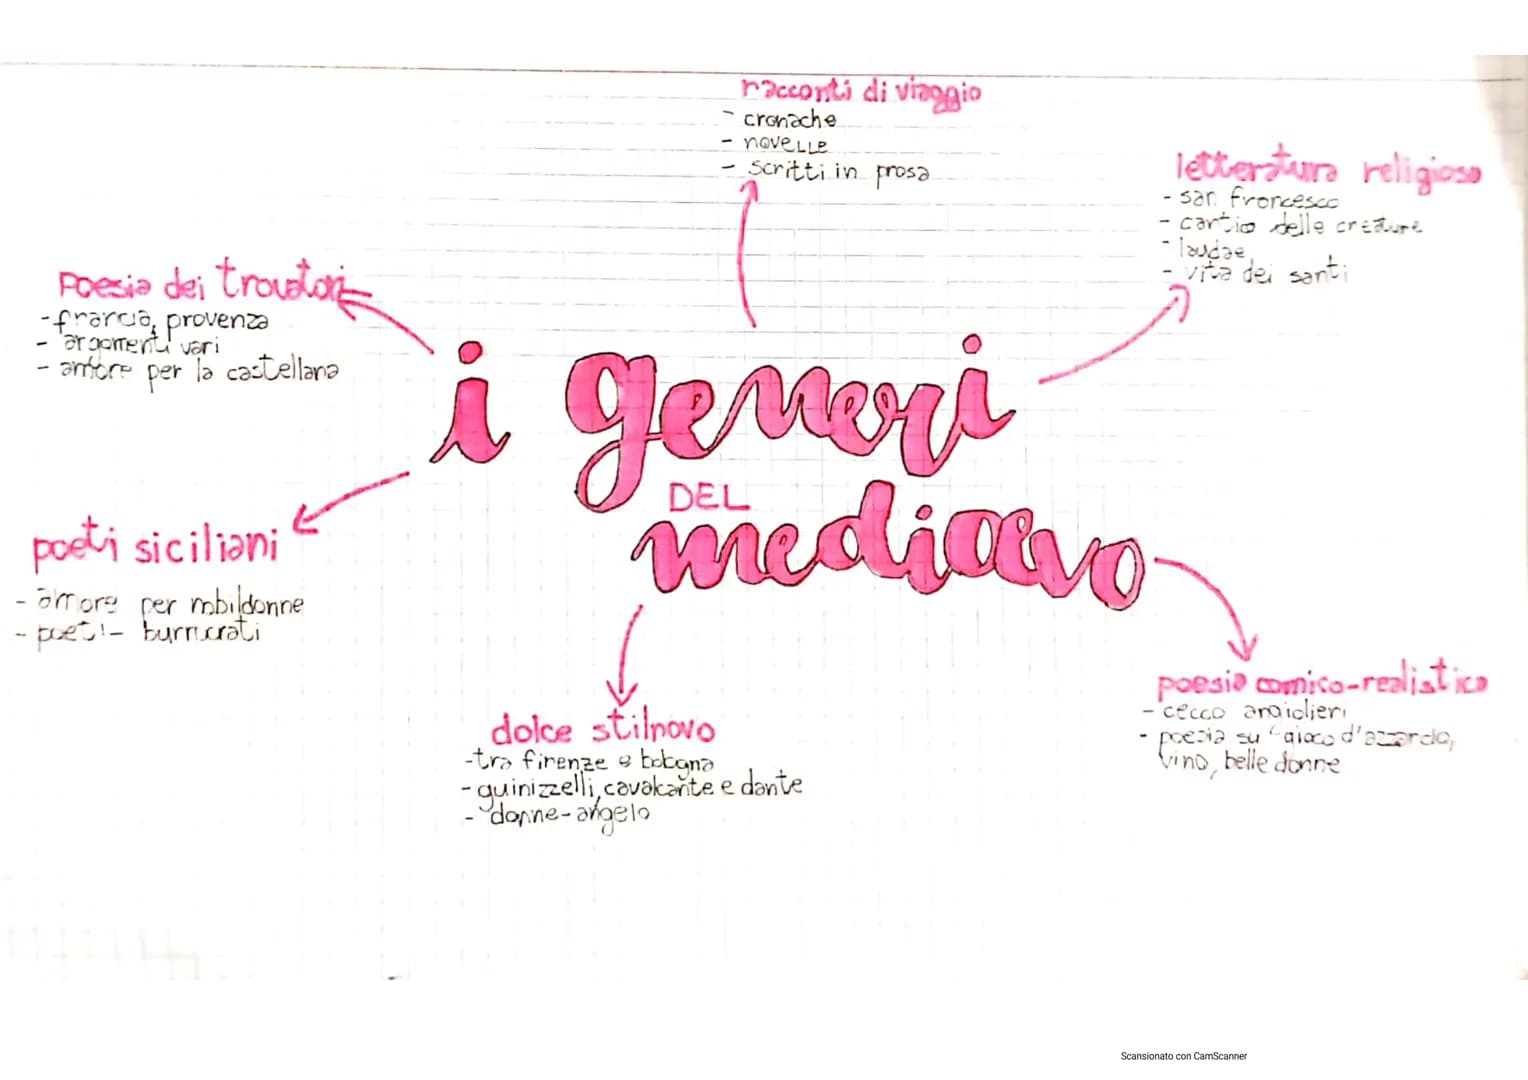 racconti di viaggio
- cronache
- novelle
- scritti in prosa
letteratura religiosa
- san francesco
- cantico delle creature
- laudae
- vita dei santi
Poesia dei trovatori
- francia, provenza
- argomenti vari
- amore per la castellana
i generi
DEL
medioevo
poeti siciliani
- amore per nobildonne
- poeti - burocrati
dolce stilnovo
- tra firenze e bologna
- guinizzelli, cavalcante e dante
- donne-angelo
poesia comico-realistica
- cecco angiolieri
- poesia su gioco d'azzardo,
vino, belle donne
Scansionato con CamScanner